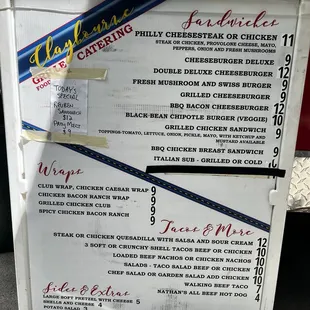 Claybourne
Grille & CATERING
FOOD
TODAY'S
SPECIAL
Sandwiches
PHILLY CHEESESTEAK OR CHICKEN 11
STEAK OR CHICKEN, PROVOLONE CHEESE, MAYO,
PEPPERS, ONION AND FRESH MUSHROOMS
CHEESEBURGER DELUXE 9
DOUBLE DELUXE CHEESEBURGER 12
FRESH MUSHROOM AND SWISS BURGER 9
GRILLED CHEESEBURGER 9
BBQ BACON CHEESEBURGER
BLACK-BEAN CHIPOTLE BURGER (VEGGIE) 10
GRILLED CHICKEN SANDWICH 9
TOPPINGS-TOMATO, LETTUCE, ONION, PICKLE, MAYO, WITH KETCHUP AND
MUSTARD AVAILABLE
BBQ CHICKEN BREAST SANDWICH 9
ITALIAN SUB - GRILLED OR COLD
Wraps
CLUB WRAP, CHICKEN CAESAR WRAP 9
CHICKEN BACON RANCH WRAP 9
GRILLED CHICKEN CLUB 9
SPICY CHICKEN BACON RANCH 9
Tacos & More
STEAK OR CHICKEN QUESADILLA WITH SALSA AND SOUR CREAM 12
3 SOFT OR CRUNCHY SHELL TACOS BEEF OR CHICKEN 10
LOADED BEEF NACHOS OR CHICKEN NACHOS 10
SALADS - TACO SALAD BEEF OR CHICKEN 10
CHEF SALAD OR GARDEN SALAD ADD CHICKEN 10
WALKING TACO 7
NATHAN'S ALL BEEF HOT DOG 4
Sides & Extras
LARGE SOFT PRETZEL WITH CHEESE 5
SHELLS AND CHEESE 4
POTATO SALAD 3